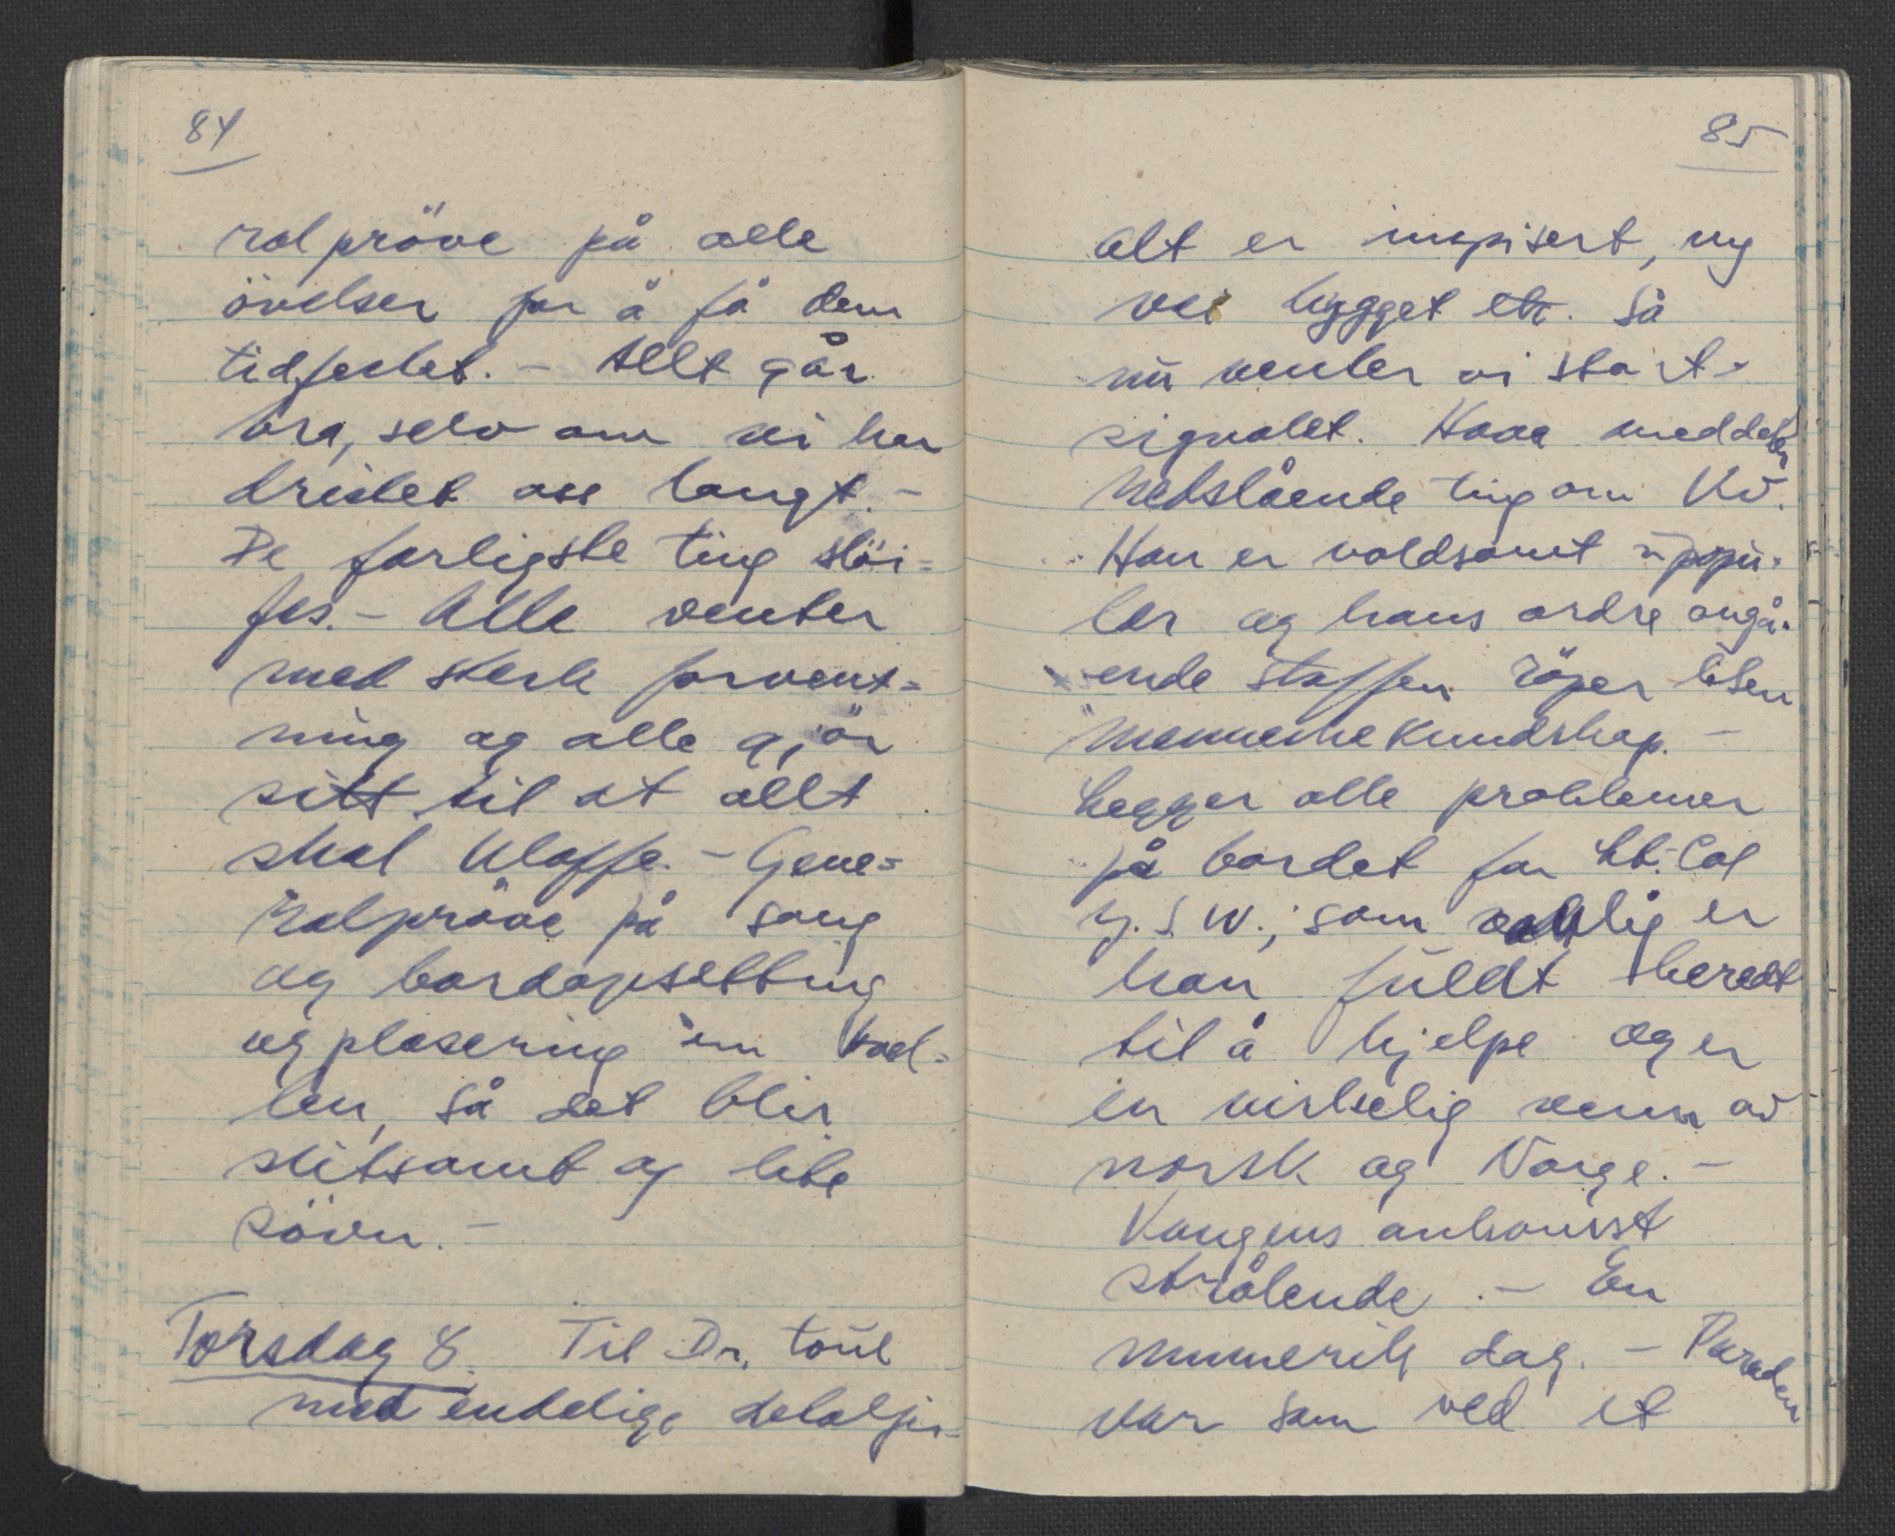 84
ralpröve på alle
övelser for å få dem
tidfestet. - Allt går
bra, selv om vi har
dristet oss langt. -
De farligste ting slöi=
fes. - Alle venter
med sterk forvent=
ning og alle gjör
sitt til at allt
skal klaffe. - Gene=
ralpröve på sang
og bordopsetting
og plasering um
len, så det blir
slitsomt og lite
sövn. -
Torsdag 8. Til Dr.
med endelige detaljer -
85
alt er inspisert, ny
vei bygget etc. Så
nu venter vi start-
signalet. Haave meddeler
nedslående ting om Kv.
Han er voldsomt upopu-
lær og hans ordre angå-
ende staffen röper liten
menneskekundskap. -
Legger alle problemer
på bordet for Lt. Col
y. S. W., som er
han fuldt beredt
til å hjelpe og er
en virkelig venn av
norsk og Norge. -
Kongens ankomst
strålende. - En
minnerik dag. - Paraden
var som ved et